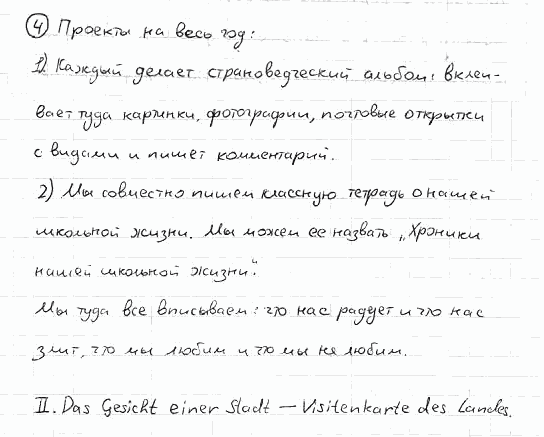 ④ Проекты на весь год:
1) Каждый делает страноведческий альбом: вклеи-
вает туда картинки, фотографии, почтовые открытки
с видами и пишет комментарий.
2) Мы совместно пишем классную тетрадь о нашей
школьной жизни. Мы можем ее назвать „Хроники
нашей школьной жизни“.
Мы туда все вписываем: что нас радует и что нас
злит, что мы любим и что мы не любим.
II. Das Gesicht einer Stadt — Visitenkarte des Landes.